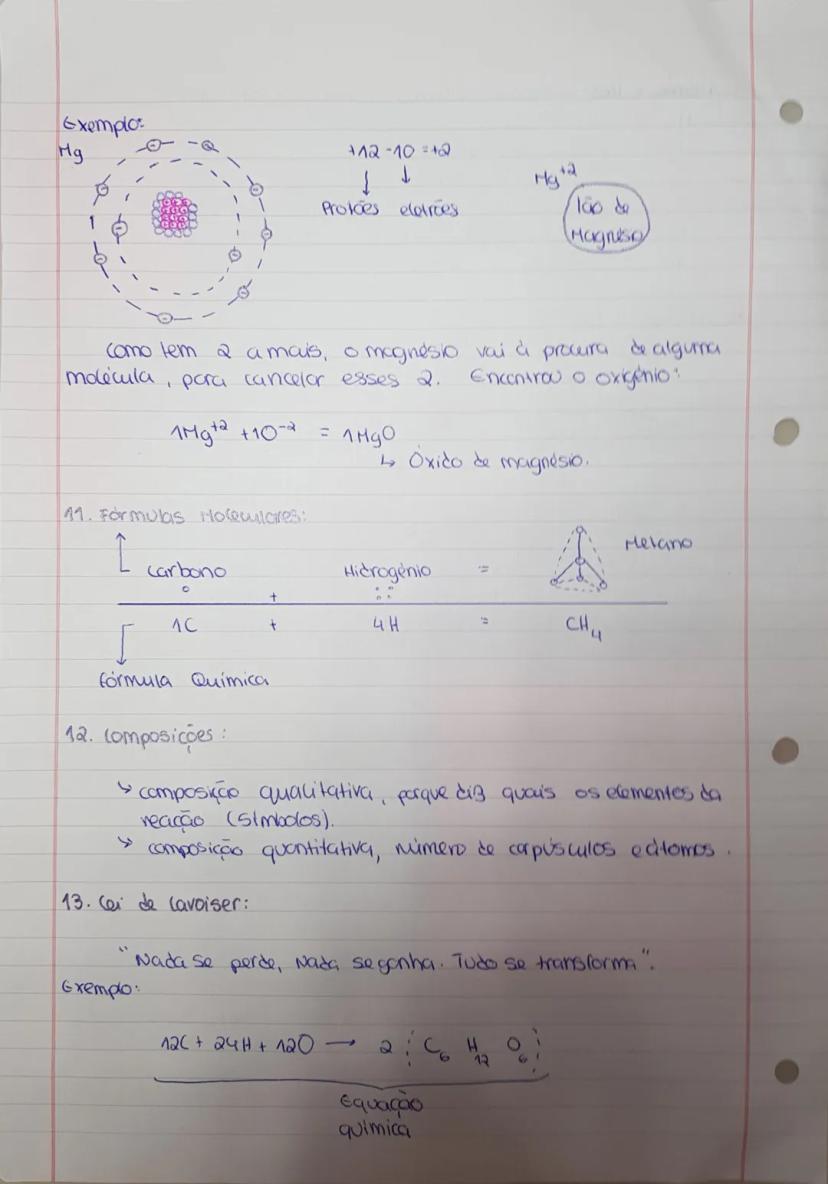 Exemplo:
Mg
+12 -10 = +2
Protões eletrões
Mg+2
Ião de
Magnésio
Como tem 2 a mais, o magnésio vai à procura de alguma
molécula, para cancelar esses 2. Encontrou o oxigénio:
1Mg+2 + 1O-2 = 1MgO
↳ Óxido de magnésio.
11. Fórmulas Moleculares:
Carbono Hidrogénio = Metano
+
1C + 4H = CH4
Fórmula Química
12. Composições:
↳ composição qualitativa, porque diz quais os elementos da
reação (símbolos).
↳ composição quantitativa, número de corpúsculos e átomos.
13. Lei de Lavoiser:
"Nada se perde, Nada se ganha. Tudo se transforma".
Exemplo:
12C + 24H + 12O → 2 C6 H12 O6
Equação
química